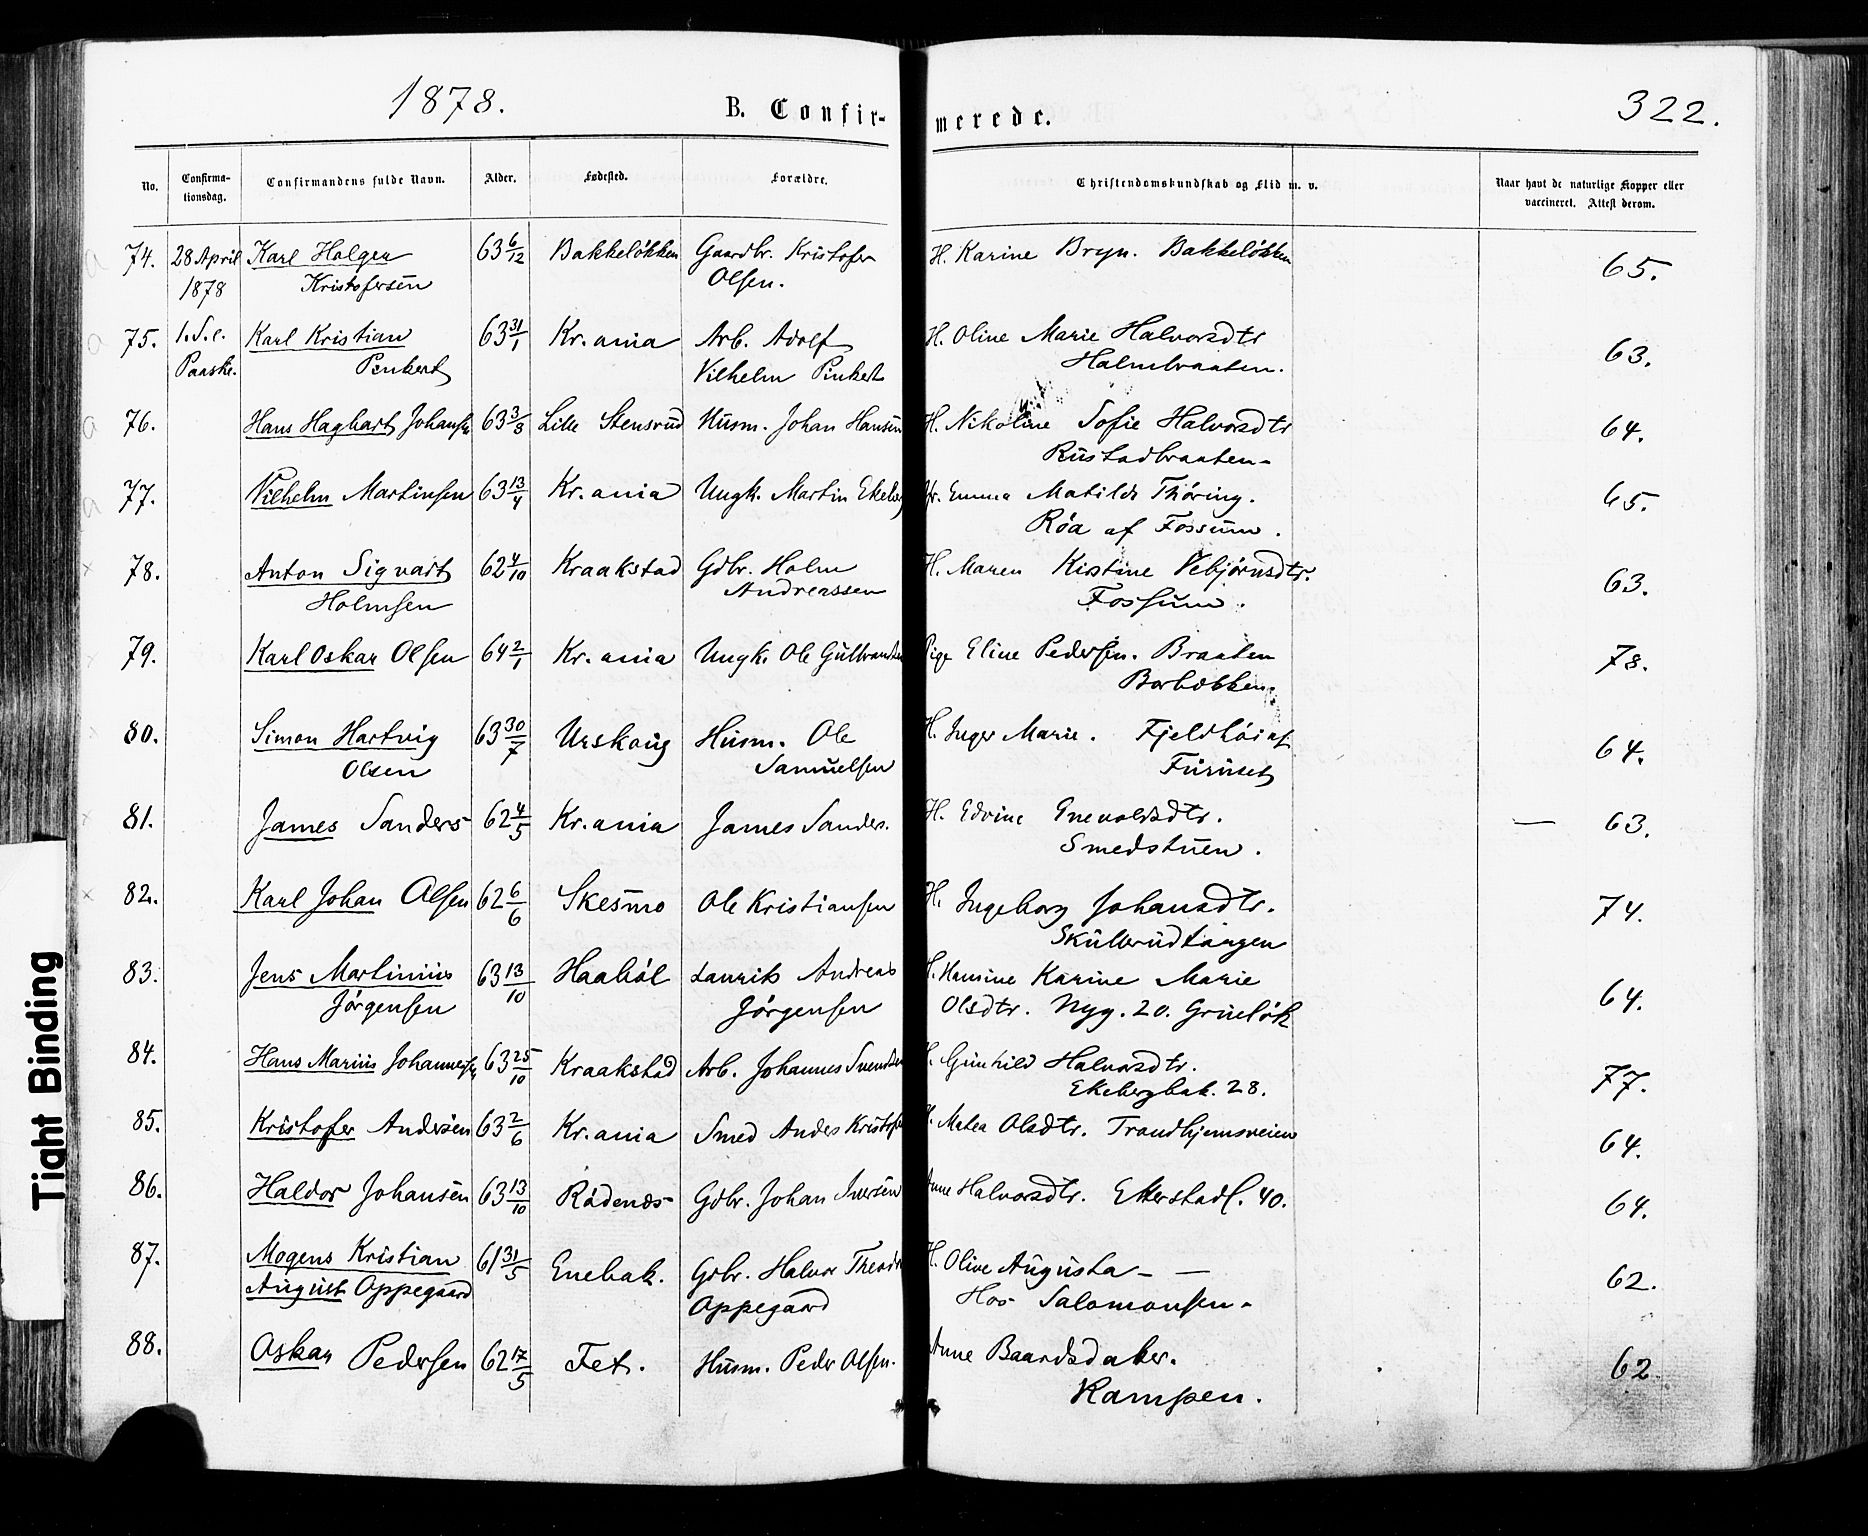 1878.
B. Confir-
merede.
322.
No.
Confirma-
tionsdag.
Confirmandens fulde Navn.
Alder.
Fødested.
Forældre.
Christendomskundskab og Flid m. v.
Naar havt de naturlige Kopper eller
vaccineret. Attest derom.
74. 28 April Karl Holger 63 6/12 Bakkeløkken Gaardbr. Kristofer H. Karine Bryn. Bakkeløkken 65.
1878 Kristofersen Olsen.
75. 1. S. e. Karl Kristian 63 31/1 Kr.ania Arb. Adolf H. Oline Marie Halvorsdtr 63.
Paaske. Pinkert Vilhelm Pinkert Halmbraaten.
76. Hans Hagbart Johansen 63 3/3 Lille Stensrud Husm. Johan Hansen H. Nikoline Sofie Halvorsdtr 64.
Rustadbraaten
77. Vilhelm Martinsen 63 13/4 Kr.ania Ungk. Martin Ekeberg Fr. Emma Matilde Thøring. 65.
Røa af Fossum.
78. Anton Sigvart 62 4/10 Kraakstad Gdbr. Holm H. Maren Kirstine Vebjørnsdtr. 63.
Holmsen Andreassen Fossum.
79. Karl Oskar Olsen 64 2/1 Kr.ania Ungk. Ole Gulbrandsen Pige Eline Pedersen. Braaten 78.
80. Simon Hartvig 63 30/7 Urskoug Husm. Ole H. Inger Marie. Fjeldhøi af 64.
Olsen Samuelsen Furuset
81. James Sanders 62 4/5 Kr.ania James Sanders. H. Edvine Enevoldsdtr. — 63.
Smedstuen.
82. Karl Johan Olsen 62 6/6 Skesmo Ole Kristiansen H. Ingeborg Johansdtr. 74.
Skullerudtangen
83. Jens Martinius 63 13/10 Haabøl Laurits Andreas H. Hansine Karine Marie 64.
Jørgensen Jørgensen Olsdtr. Nyg. 20. Grüneløk
84. Hans Marius Johannesen 63 25/10 Kraakstad Arb. Johannes Svendsen H. Gunhild Halvorsdtr. 77.
Ekebergbak. 28.
85. Kristofer Andersen 63 2/6 Kr.ania Smed Anders Kristofer H. Matea Olsdtr. Trondhjemsveien 64.
86. Haldor Johansen 63 13/10 Rødenæs Gdbr. Johan Iversen Anne Halvorsdtr. Etterstadl. 40. 64.
87. Mogens Kristian 61 31/5 Enebak. Gdbr. Halvor Theodor H. Olive Augusta — — 62.
August Oppegaard Oppegaard Hos Salomonsen.
88. Oskar Pedersen 62 17/5 Fet. Husm. Peder Olsen. Anne Baardsdatter. 62.
Kampen.
Tight Binding